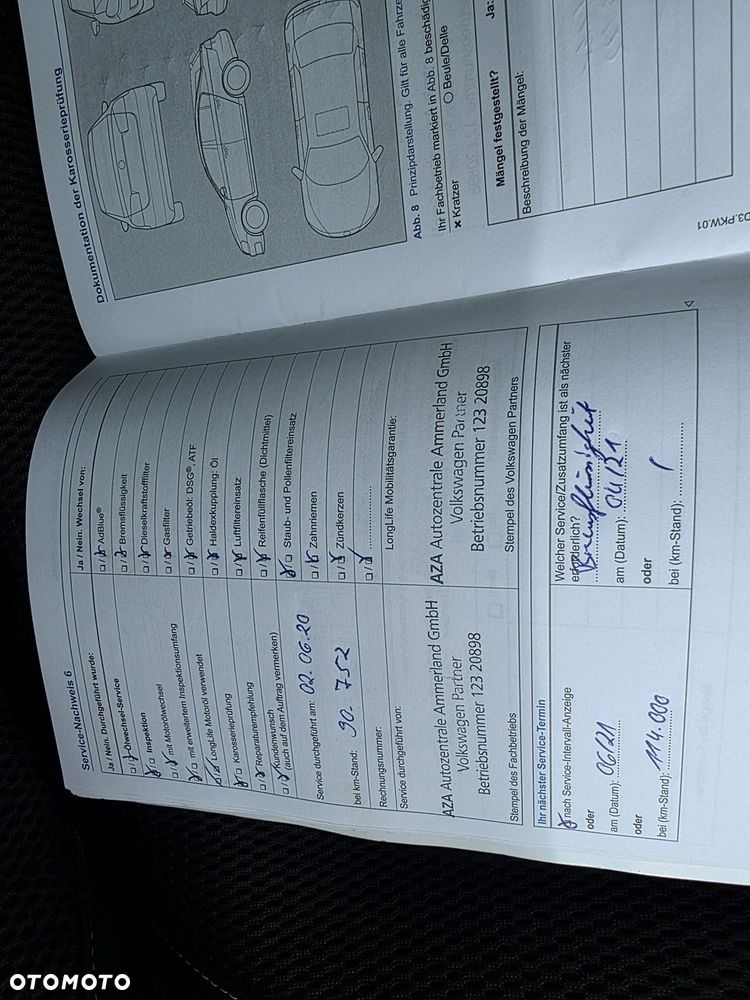 Service-Nachweis 6
Ja / Nein. Durchgeführt wurde:
Ölwechsel-Service
Inspektion
mit Motorölwechsel
mit erweitertem Inspektionsumfang
LongLife Motoröl verwendet
Karosserieprüfung
Reparaturempfehlung
Kundenwunsch
(auch auf dem Auftrag vermerken)
Service durchgeführt am: 02.06.20
bei km-Stand: 90.752
Rechnungsnummer:
Service durchgeführt von:
AZA Autozentrale Ammerland GmbH
Volkswagen Partner
Betriebsnummer 123 20898
Stempel des Fachbetriebs
Ja / Nein. Wechsel von:
AdBlue®
Bremsflüssigkeit
Dieselkraftstofffilter
Gasfilter
Getriebeöl: DSG®, ATF
Haldexkupplung: Öl
Luftfiltereinsatz
Reifenfüllflasche (Dichtmittel)
Staub- und Pollenfiltereinsatz
Zahnriemen
Zündkerzen
LongLife Mobilitätsgarantie:
AZA Autozentrale Ammerland GmbH
Volkswagen Partner
Betriebsnummer 123 20898
Stempel des Volkswagen Partners
Ihr nächster Service-Termin
nach Service-Intervall-Anzeige
oder
am (Datum): 06/21
oder
bei (km-Stand): 114.000
Welcher Service/Zusatzumfang ist als nächster
erforderlich? Bremsflüssigkeit
am (Datum): 04/21
oder
bei (km-Stand):
Dokumentation der Karosserieprüfung
Abb. 8 Prinzipdarstellung. Gilt für alle
Ihr Fachbetrieb markiert in Abb. 8
× Kratzer ○ Beule/Delle
Mängel festgestellt? Ja:
Beschreibung der Mängel:
D3.PKW.01
OTOMOTO